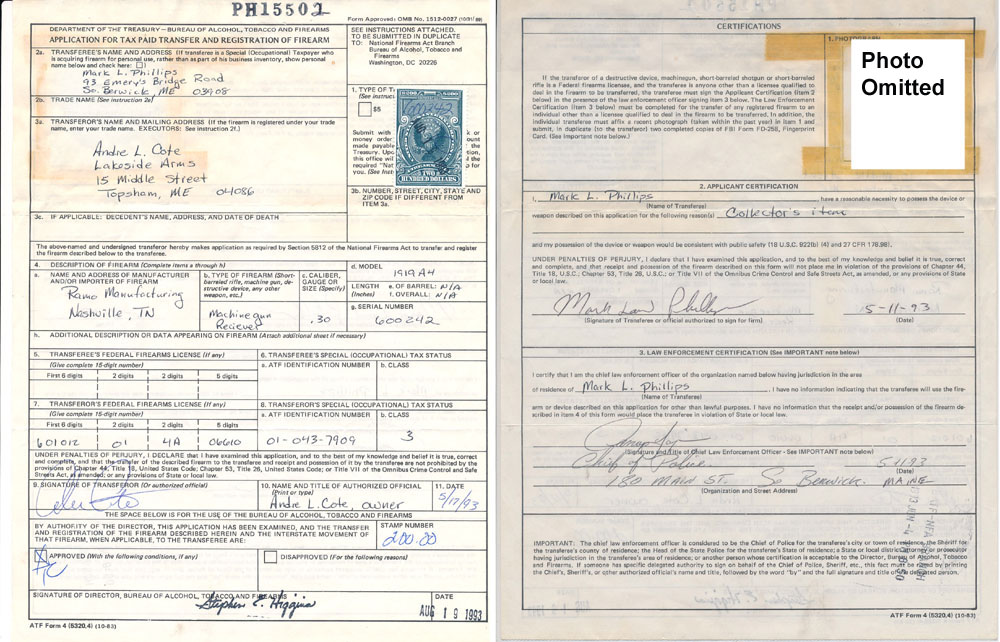 PH15502
Form Approved: OMB No. 1512-0027 (10/31/89)
DEPARTMENT OF THE TREASURY – BUREAU OF ALCOHOL, TOBACCO AND FIREARMS
APPLICATION FOR TAX PAID TRANSFER AND REGISTRATION OF FIREARM
SEE INSTRUCTIONS ATTACHED.
TO BE SUBMITTED IN DUPLICATE
TO: National Firearms Act Branch
Bureau of Alcohol, Tobacco and
Firearms
Washington, DC 20226
2a. TRANSFEREE'S NAME AND ADDRESS (If transferee is a Special (Occupational) Taxpayer who
is acquiring firearm for personal use, rather than as part of his business inventory, show personal
name below and check here: )
Mark L. Phillips
93 Emery's Bridge Road
So. Berwick, ME 03908
2b. TRADE NAME (See instruction 2e)
1. TYPE OF
(See
$5
TWO
HUNDRED DOLLARS
Submit with
money order
made payable
Treasury. Upon
this office will
required "Nat
you. (See Inst
3a. TRANSFEROR'S NAME AND MAILING ADDRESS (If the firearm is registered under your trade
name, enter your trade name. EXECUTORS: See instruction 2f.)
Andre L. Cote
Lakeside Arms
15 Middle Street
Topsham, ME 04086
3b. NUMBER, STREET, CITY, STATE AND
ZIP CODE IF DIFFERENT FROM
ITEM 3a.
3c. IF APPLICABLE: DECEDENT'S NAME, ADDRESS, AND DATE OF DEATH
The above-named and undersigned transferor hereby makes application as required by Section 5812 of the National Firearms Act to transfer and register
the firearm described below to the transferee.
4. DESCRIPTION OF FIREARM (Complete items a through h)
a. NAME AND ADDRESS OF MANUFACTURER
AND/OR IMPORTER OF FIREARM
Ramo Manufacturing
Nashville, TN
b. TYPE OF FIREARM (Short-
barreled rifle, machine gun, de-
structive device, any other
weapon, etc.)
Machinegun
Reciever
c. CALIBER,
GAUGE OR
SIZE (Specify)
.30
d. MODEL
1919A4
LENGTH
(Inches)
e. OF BARREL: N/A
f. OVERALL: N/A
g. SERIAL NUMBER
600242
h. ADDITIONAL DESCRIPTION OR DATA APPEARING ON FIREARM (Attach additional sheet if necessary)
5. TRANSFEREE'S FEDERAL FIREARMS LICENSE (If any)
(Give complete 15-digit number)
First 6 digits 2 digits 2 digits 5 digits
6. TRANSFEREE'S SPECIAL (OCCUPATIONAL) TAX STATUS
a. ATF IDENTIFICATION NUMBER b. CLASS
7. TRANSFEROR'S FEDERAL FIREARMS LICENSE (If any)
(Give complete 15-digit number)
First 6 digits 2 digits 2 digits 5 digits
601012 01 4A 06610
8. TRANSFEROR'S SPECIAL (OCCUPATIONAL) TAX STATUS
a. ATF IDENTIFICATION NUMBER b. CLASS
01-043-7909 3
UNDER PENALTIES OF PERJURY, I DECLARE that I have examined this application, and to the best of my knowledge and belief it is true, correct
and complete, and that the transfer of the described firearm to the transferee and receipt and possession of it by the transferee are not prohibited by the
provisions of Chapter 44, Title 18, United States Code; Chapter 53, Title 26, United States Code; or Title VII of the Omnibus Crime Control and Safe
Streets Act, as amended; or any provisions of State or local law.
9. SIGNATURE OF TRANSFEROR (Or authorized official)
10. NAME AND TITLE OF AUTHORIZED OFFICIAL
(Print or type)
Andre L. Cote, owner
11. DATE
5/17/93
THE SPACE BELOW IS FOR THE USE OF THE BUREAU OF ALCOHOL, TOBACCO AND FIREARMS
BY AUTHORITY OF THE DIRECTOR, THIS APPLICATION HAS BEEN EXAMINED, AND THE TRANSFER
AND REGISTRATION OF THE FIREARM DESCRIBED HEREIN AND THE INTERSTATE MOVEMENT OF
THAT FIREARM, WHEN APPLICABLE, TO THE TRANSFEREE ARE:
STAMP NUMBER
200.00
APPROVED (With the following conditions, if any)
DISAPPROVED (For the following reasons)
SIGNATURE OF DIRECTOR, BUREAU OF ALCOHOL, TOBACCO AND FIREARMS
Stephen E. Higgins
DATE
AUG 19 1993
ATF Form 4 (5320.4) (10-83)
CERTIFICATIONS
1. PHOTOGRAPH
Photo
Omitted
If the transferor of a destructive device, machinegun, short-barreled shotgun or short-barreled
rifle is a Federal firearms licensee, and the transferee is anyone other than a licensee qualified to
deal in the firearm to be transferred, the transferee must sign the Applicant Certification (item 2
below) in the presence of the law enforcement officer signing item 3 below. The Law Enforcement
Certification (item 3 below) must be completed for the transfer of any registered firearm to an
individual other than a licensee qualified to deal in the firearm to be transferred. In addition, the
individual transferee must affix a recent photograph (taken within the past year) in item 1 and
submit, in duplicate (to the transferor) two completed copies of FBI Form FD-258, Fingerprint
Card. (See Important note below.)
2. APPLICANT CERTIFICATION
I, Mark L. Phillips, have a reasonable necessity to possess the device or
(Name of Transferee)
weapon described on this application for the following reason(s) Collector's item
and my possession of the device or weapon would be consistent with public safety (18 U.S.C. 922(b) (4) and 27 CFR 178.98).
UNDER PENALTIES OF PERJURY, I declare that I have examined this application, and to the best of my knowledge and belief it is true, correct
and complete, and that receipt and possession of the firearm described on this form will not place me in violation of the provisions of Chapter 44,
Title 18, U.S.C., Chapter 53, Title 26, U.S.C.; or Title VII of the Omnibus Crime Control and Safe Streets Act, as amended, or any provisions of State
or local law.
5-11-93
(Signature of Transferee or official authorized to sign for firm) (Date)
3. LAW ENFORCEMENT CERTIFICATION (See IMPORTANT note below)
I certify that I am the chief law enforcement officer of the organization named below having jurisdiction in the area
of residence of Mark L. Phillips. I have no information indicating that the transferee will use the fire-
(Name of Transferee)
arm or device described on this application for other than lawful purposes. I have no information that the receipt and/or possession of the firearm de-
scribed in item 4 of this form would place the transferee in violation of State or local law.
(Signature and Title of Chief Law Enforcement Officer - See IMPORTANT note below)
Chief of Police 51193
(Date)
180 MAIN ST. So BERWICK, MAINE
(Organization and Street Address)
IMPORTANT: The chief law enforcement officer is considered to be the Chief of Police for the transferee's city or town of residence, the Sheriff for
the transferee's county of residence; the Head of the State Police for the transferee's State of residence; a State or local district attorney or prosecutor
having jurisdiction in the transferee's area of residence; or another person whose certification is acceptable to the Director, Bureau of Alcohol, Tobacco
and Firearms. If someone has specific delegated authority to sign on behalf of the Chief of Police, Sheriff, etc., this fact must be noted by printing
the Chief's, Sheriff's, or other authorized official's name and title, followed by the word "by" and the full signature and title of the delegated person.
ATF Form 4 (5320.4) (10-83)